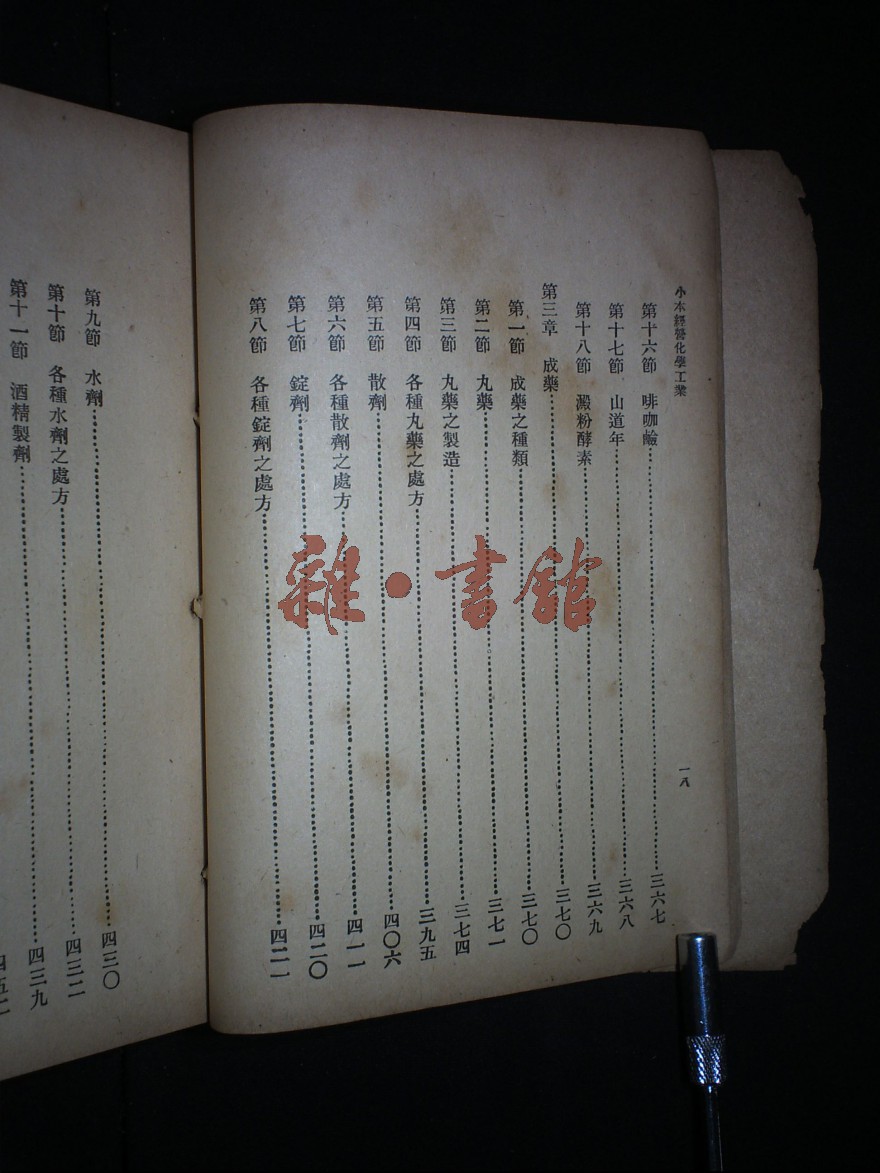 小本經營化學工業
一八
第十六節 啡咖鹼……三六七
第十七節 山道年……三六八
第十八節 澱粉酵素……三六九
第三章 成藥……三七〇
第一節 成藥之種類……三七〇
第二節 丸藥……三七一
第三節 丸藥之製造……三七四
第四節 各種丸藥之處方……三九五
第五節 散劑……四〇六
第六節 各種散劑之處方……四一一
第七節 錠劑……四二〇
第八節 各種錠劑之處方……四二一
第九節 水劑……四三〇
第十節 各種水劑之處方……四三二
第十一節 酒精製劑……四三九
四五二
雜·書館